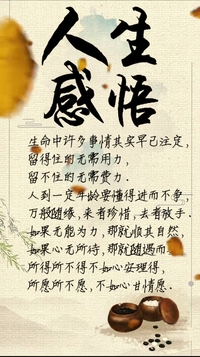 人生
感悟
生命中许多事情其实早已注定，
留得住的无需用力，
留不住的无需费力.
人到一定年龄要懂得进而不争，
万般随缘，来者珍惜，去者放手.
如果无能为力，那就顺其自然，
如果心无所待，那就随遇而安.
所得所不得不如心安理得，
所愿所不愿，不如心甘情愿.